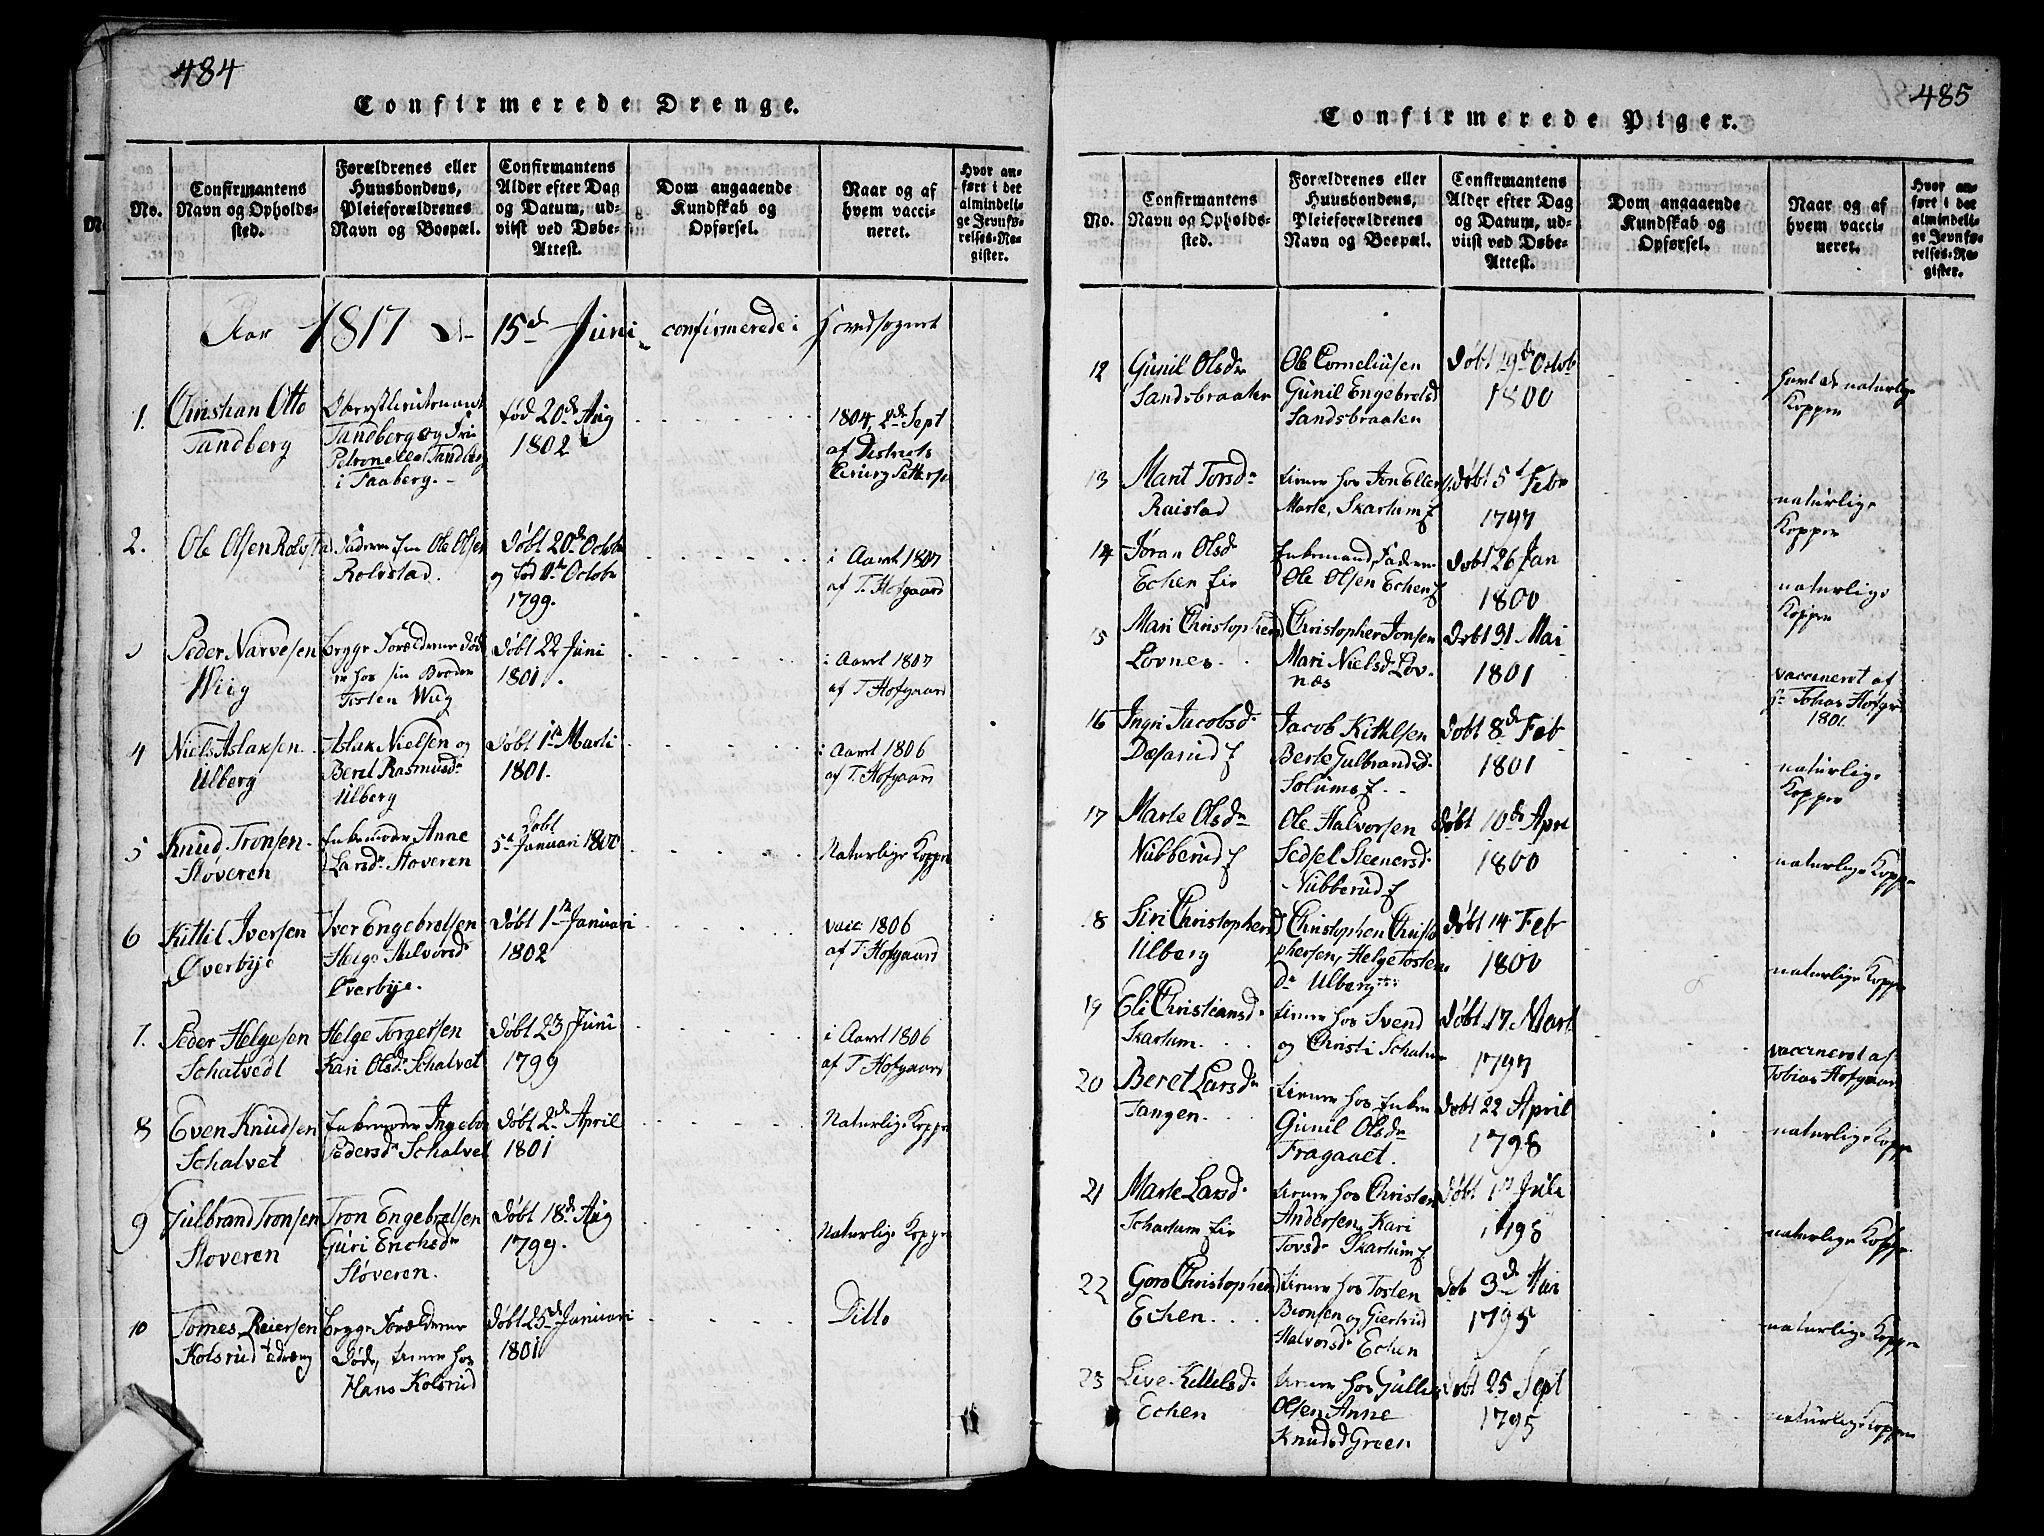 484
Confirmerede Drenge.
No.
Confirmantens
Navn og Opholds-
sted.
Forældrenes eller
Huusbondens,
Pleieforældrenes
Navn og Boepæl.
Confirmantens
Alder efter Dag
og Datum, ud-
viist ved Døbe-
Attest.
Dom angaaende
Kundskab og
Opførsel.
Naar og af
hvem vacci-
neret.
Hvor an-
ført i det
almindeli-
ge Jevnfø-
relses-Re-
gister.
Aar 1817 d. 15de Juni confirmerede i
1.
Christian Otto
Tandberg
Oberstlieutenant
Tandberg og Fru
Petronella Tandberg
i Faaberg.
fød 20de Aug
1802
1804, 2de Sept
af Districts
2.
Ole Olsen Rolvstad
Faderen Ole Olsen
Rolvstad.
Døbt 20de Octobr
og fød Octobr
1799.
i Aaret 1807
af T. Hofgaard
3
Peder Narvesen
Wiig
begge Forældrene død
er hos sin Broder
Tosten Wiig
Døbt 22 Juni
1801.
i Aaret 1807
af T Hofgaard
4
Niels Aslaksen
Ulberg
Aslak Nielsen og
Beret Rasmusdr
Ulberg
Døbt 1ste Marti
1801.
i Aaret 1806
af T. Hofgaard
5
Knud Tronsen
Støveren
Enkemoder Anne
Larsdr Støveren
Døbt
5te Januari 1800
Naturlige Kopper
6
Kittil Iversen
Øverbye
Iver Engebretsen
Helge Halvorsdr
Øverbye.
Døbt 1ste Januari
1802
vacc 1806
af T. Hofgaard
7.
Peder Helgesen
Schalvedt
Helge Torgersen
Kari Olsdr Schalvet
Døbt 23 Juni
1799
i Aaret 1806
af T. Hofgaard
8
Even Knudsen
Schalvet
Enkemoder Ingebor
Pedersdr Schalvet
Døbt 2de April
1801
Naturlige Kopper
9
Gulbrand Tronsen
Støveren
Tron Engebretsen
Guri Erichsdr
Støveren.
Døbt 18de Aug
1799.
Naturlige Kopper
10
Tomes Reiersen
Kolsrud
begge Forældrene
Døde, tiener hos
Hans Kolsrud
Døbt 25de Januari
1801
Ditto
11
485
Confirmerede Piger.
No.
Confirmantens
Navn og Opholds-
sted.
Forældrenes eller
Huusbondens,
Pleieforældrenes
Navn og Boepæl.
Confirmantens
Alder efter Dag
og Datum, ud-
viist ved Døbe-
Attest.
Dom angaaende
Kundskab og
Opførsel.
Naar og af
hvem vacci-
neret.
Hvor an-
ført i det
almindeli-
ge Jevnfø-
relses-Re-
gister.
12
Gunil Olsdr
Sandsbraaten
Ole Corneliusen
Gunil Engebretsd
Sandsbraaten
Døbt 19de Octob
1800
havt de naturlige
Kopper
13
Marit Torsdr
Raistad
tiener hos Jon Ellen
Marte, Skartum
Døbt 5te Febr
1797
naturlige
Kopper
14
Jøran Olsdr
Echen Eie
Enkemand, Faderen
Ole Olsen Echen
Døbt 26 Jan
1800
naturlige
Kopper
15
Mari Christophersd
Lovnes
Christopher Jonsen
Mari Nielsdr Lov-
næs
Døbt 31 Mai
1801
vaccineret af
Tobias Hofgr
1801
16
Ingri Jacobsdr
Jacob Kittilsen
Berte Gulbrandsdr
Solums
Døbt 8de Feb
1801
naturlige
Kopper
17
Marte Olsdr
Nubberud
Ole Halvorsen
Sedsel Steenersdr
Nubberud
Døbt 10de Apri
1800
naturlige Kopper
18
Siri Christophersd
Ulberg
Christophen Christo
phersen, Helge Tosten
Dr Ulberg
Døbt 14 Feb
1800
naturlige Kopper
19
Eli Christiansdr
Skartum
tiener hos Svend
og Christi
Døbt 17 Mart
1797
vaccineret af
Tobias Hofgaard
20
Beret Larsdr
Tangen
tiener hos Enken
Gunil Olsdr
Fragaaet.
Døbt 22 April
1798
naturlige Kopper
21
Marte Larsdr
Schartum Eie
tiener hos Christen
Andersen, Kari
Tovsdr Skartum
Døbt 1ste Juli
1798
naturlige Kopper
22
Goro Christophersd
Echen
tiener hos Tosten
Bronsen og Giertrud
Halvorsdr Echen
Døb 3de Mai
1795
naturlige Kopper
23
Live Kittelsdr
Echen
tiener hos Gullich
Olsen Anne
Knudsd Green
Døbt 25 Sept
1795
naturlige Kopper